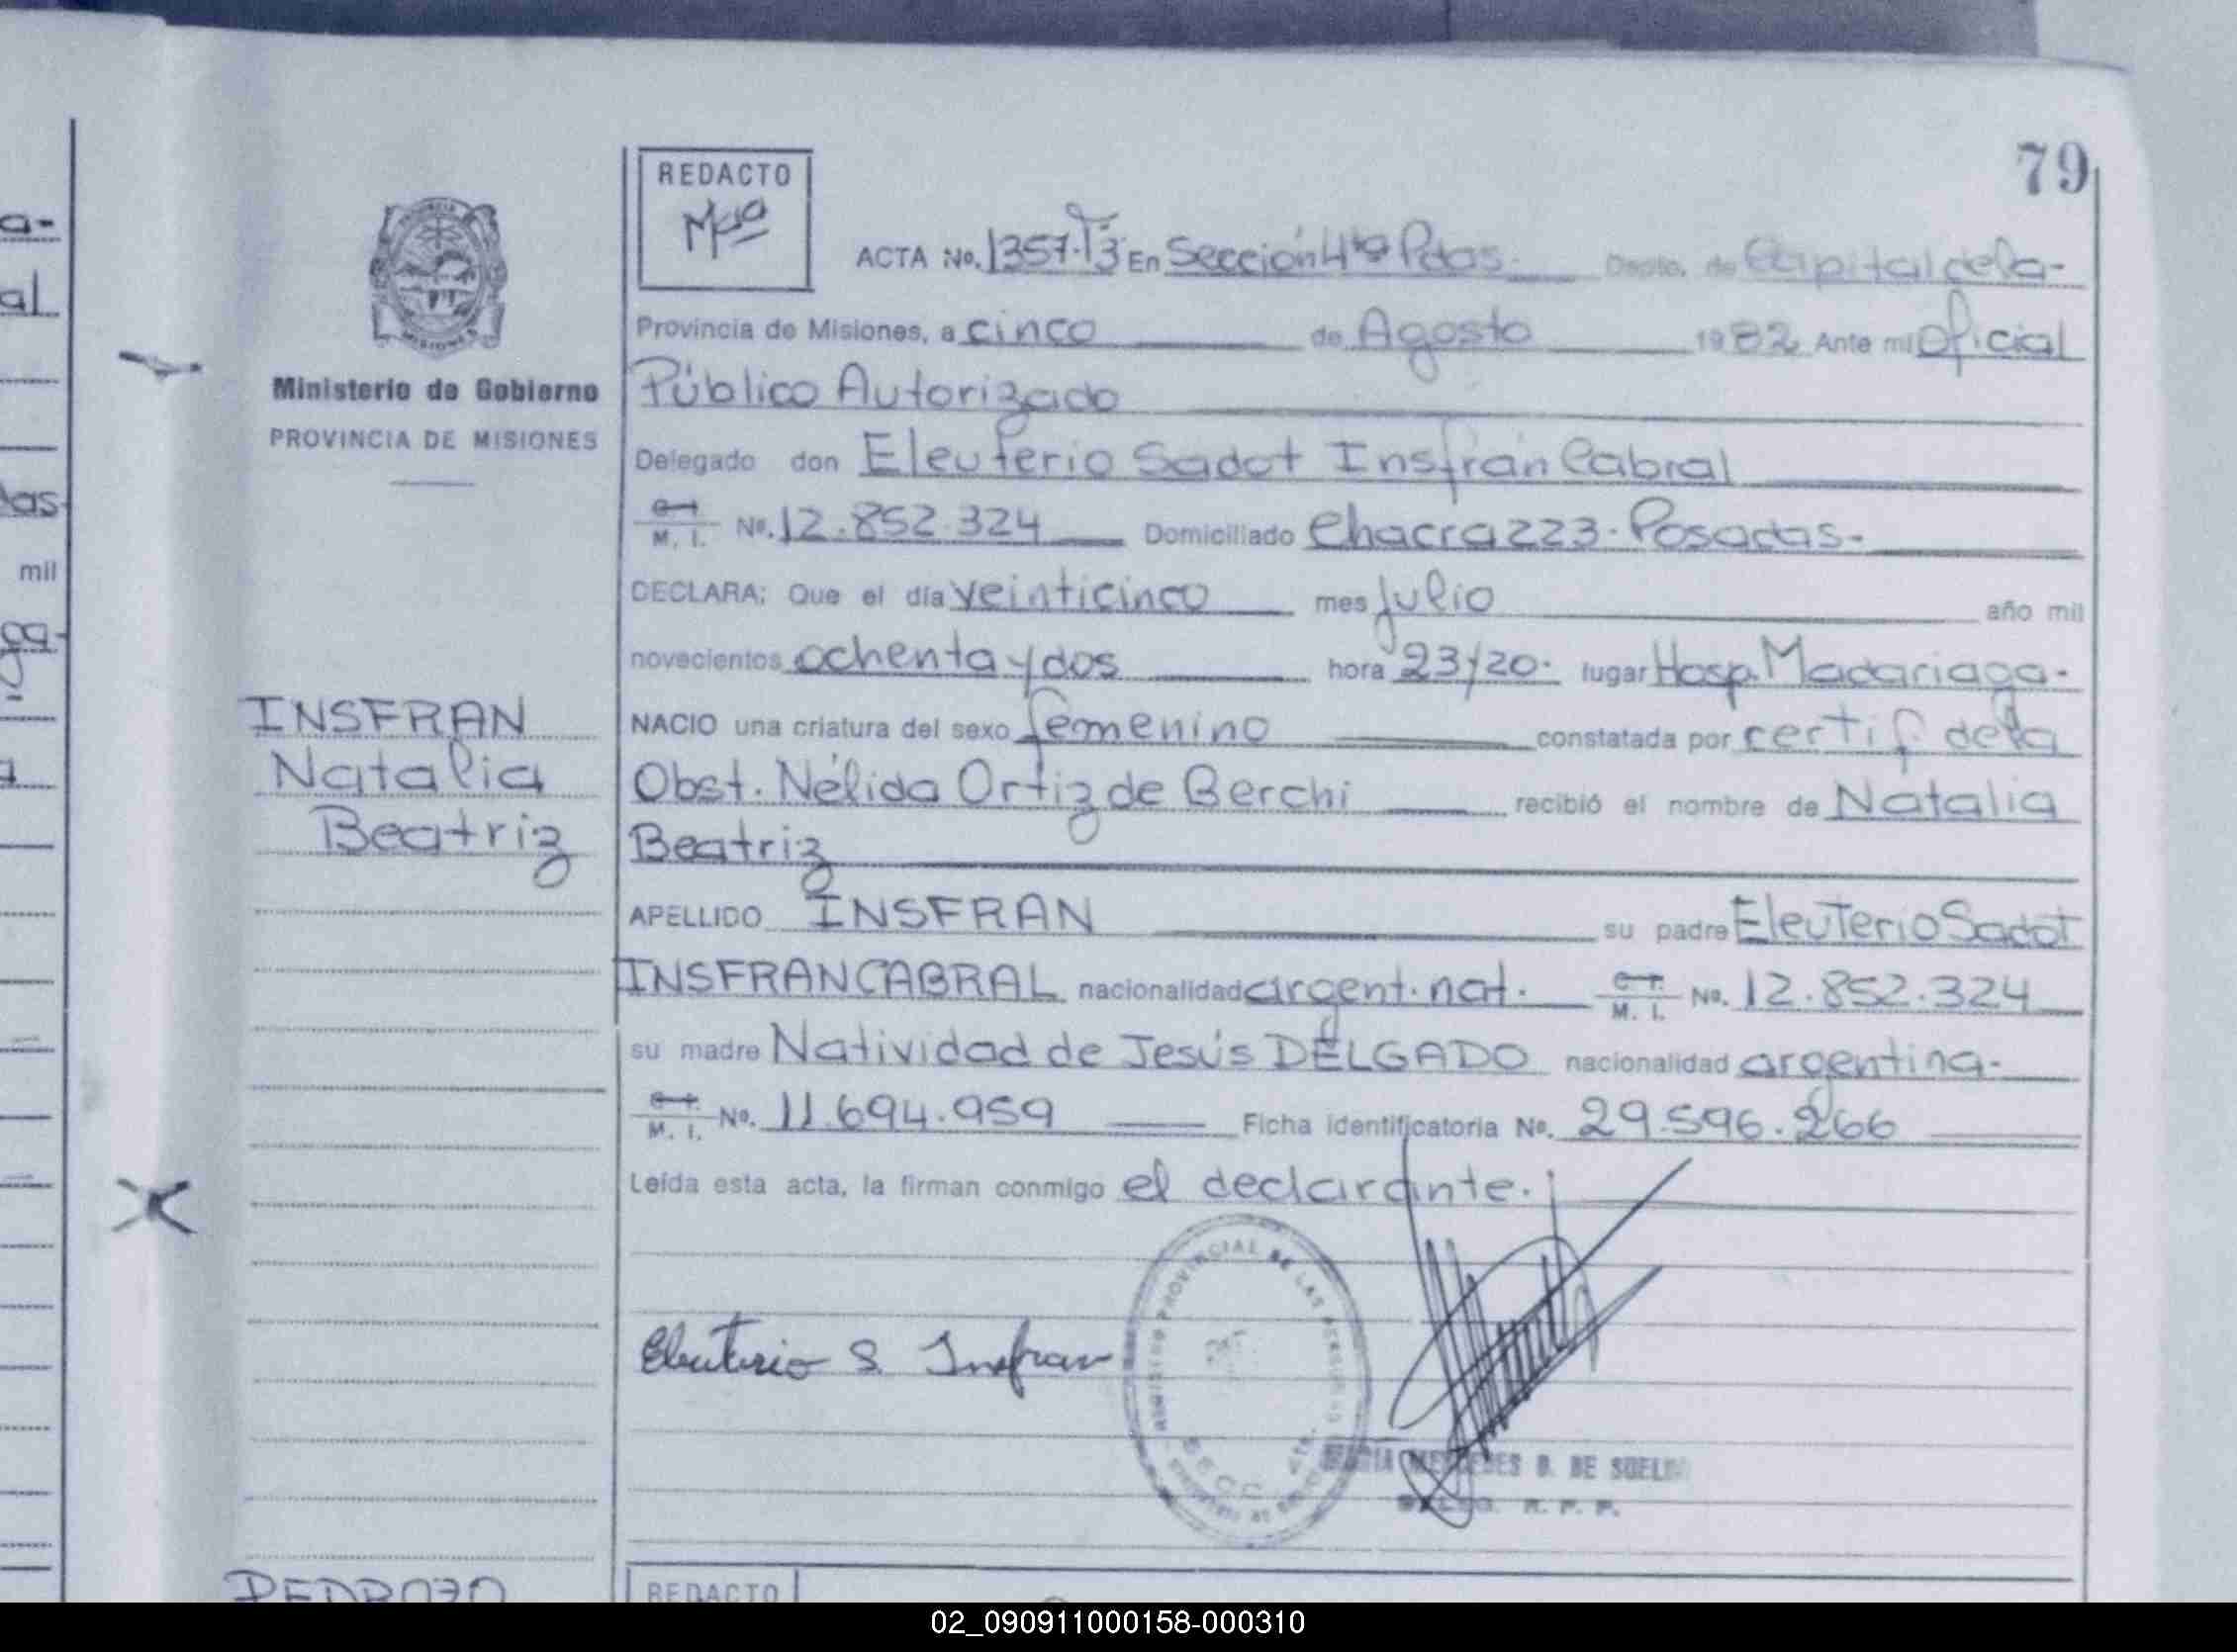 79
REDACTO
Ministerio de Gobierno
PROVINCIA DE MISIONES
ACTA No. 1357. T 3 En Sección 4ta Pdas. Depto. de Capital de la-
Provincia de Misiones, a cinco de Agosto 1982 Ante mi Oficial
Público Autorizado
Delegado don Eleuterio Sadot Insfrán Cabral
M. I. No. 12.852.324 Domiciliado Chacra 223. Posadas.-
DECLARA: Que el día veinticinco mes julio año mil
novecientos ochenta y dos hora 23/20. lugar Hosp. Madariaga.
INSFRAN
Natalia
Beatriz
NACIO una criatura del sexo femenino constatada por certif de la
Obst. Nélida Ortiz de Berchi recibió el nombre de Natalia
Beatriz
APELLIDO INSFRAN su padre Eleuterio Sadot
INSFRAN CABRAL nacionalidad argent. nat. M. I. No. 12.852.324
su madre Natividad de Jesús DELGADO nacionalidad argentina.
M. I. No. 11.694.959 Ficha identificatoria No. 29.596.266
Leída esta acta, la firman conmigo el declarante.
Eleuterio S. Insfran
PROVINCIAL DE LAS
SECC 4ta.
MERCEDES B. DE
R. P. P.
PEDROZO
REDACTO
a-
al
as
mil
ga-
02_090911000158-000310